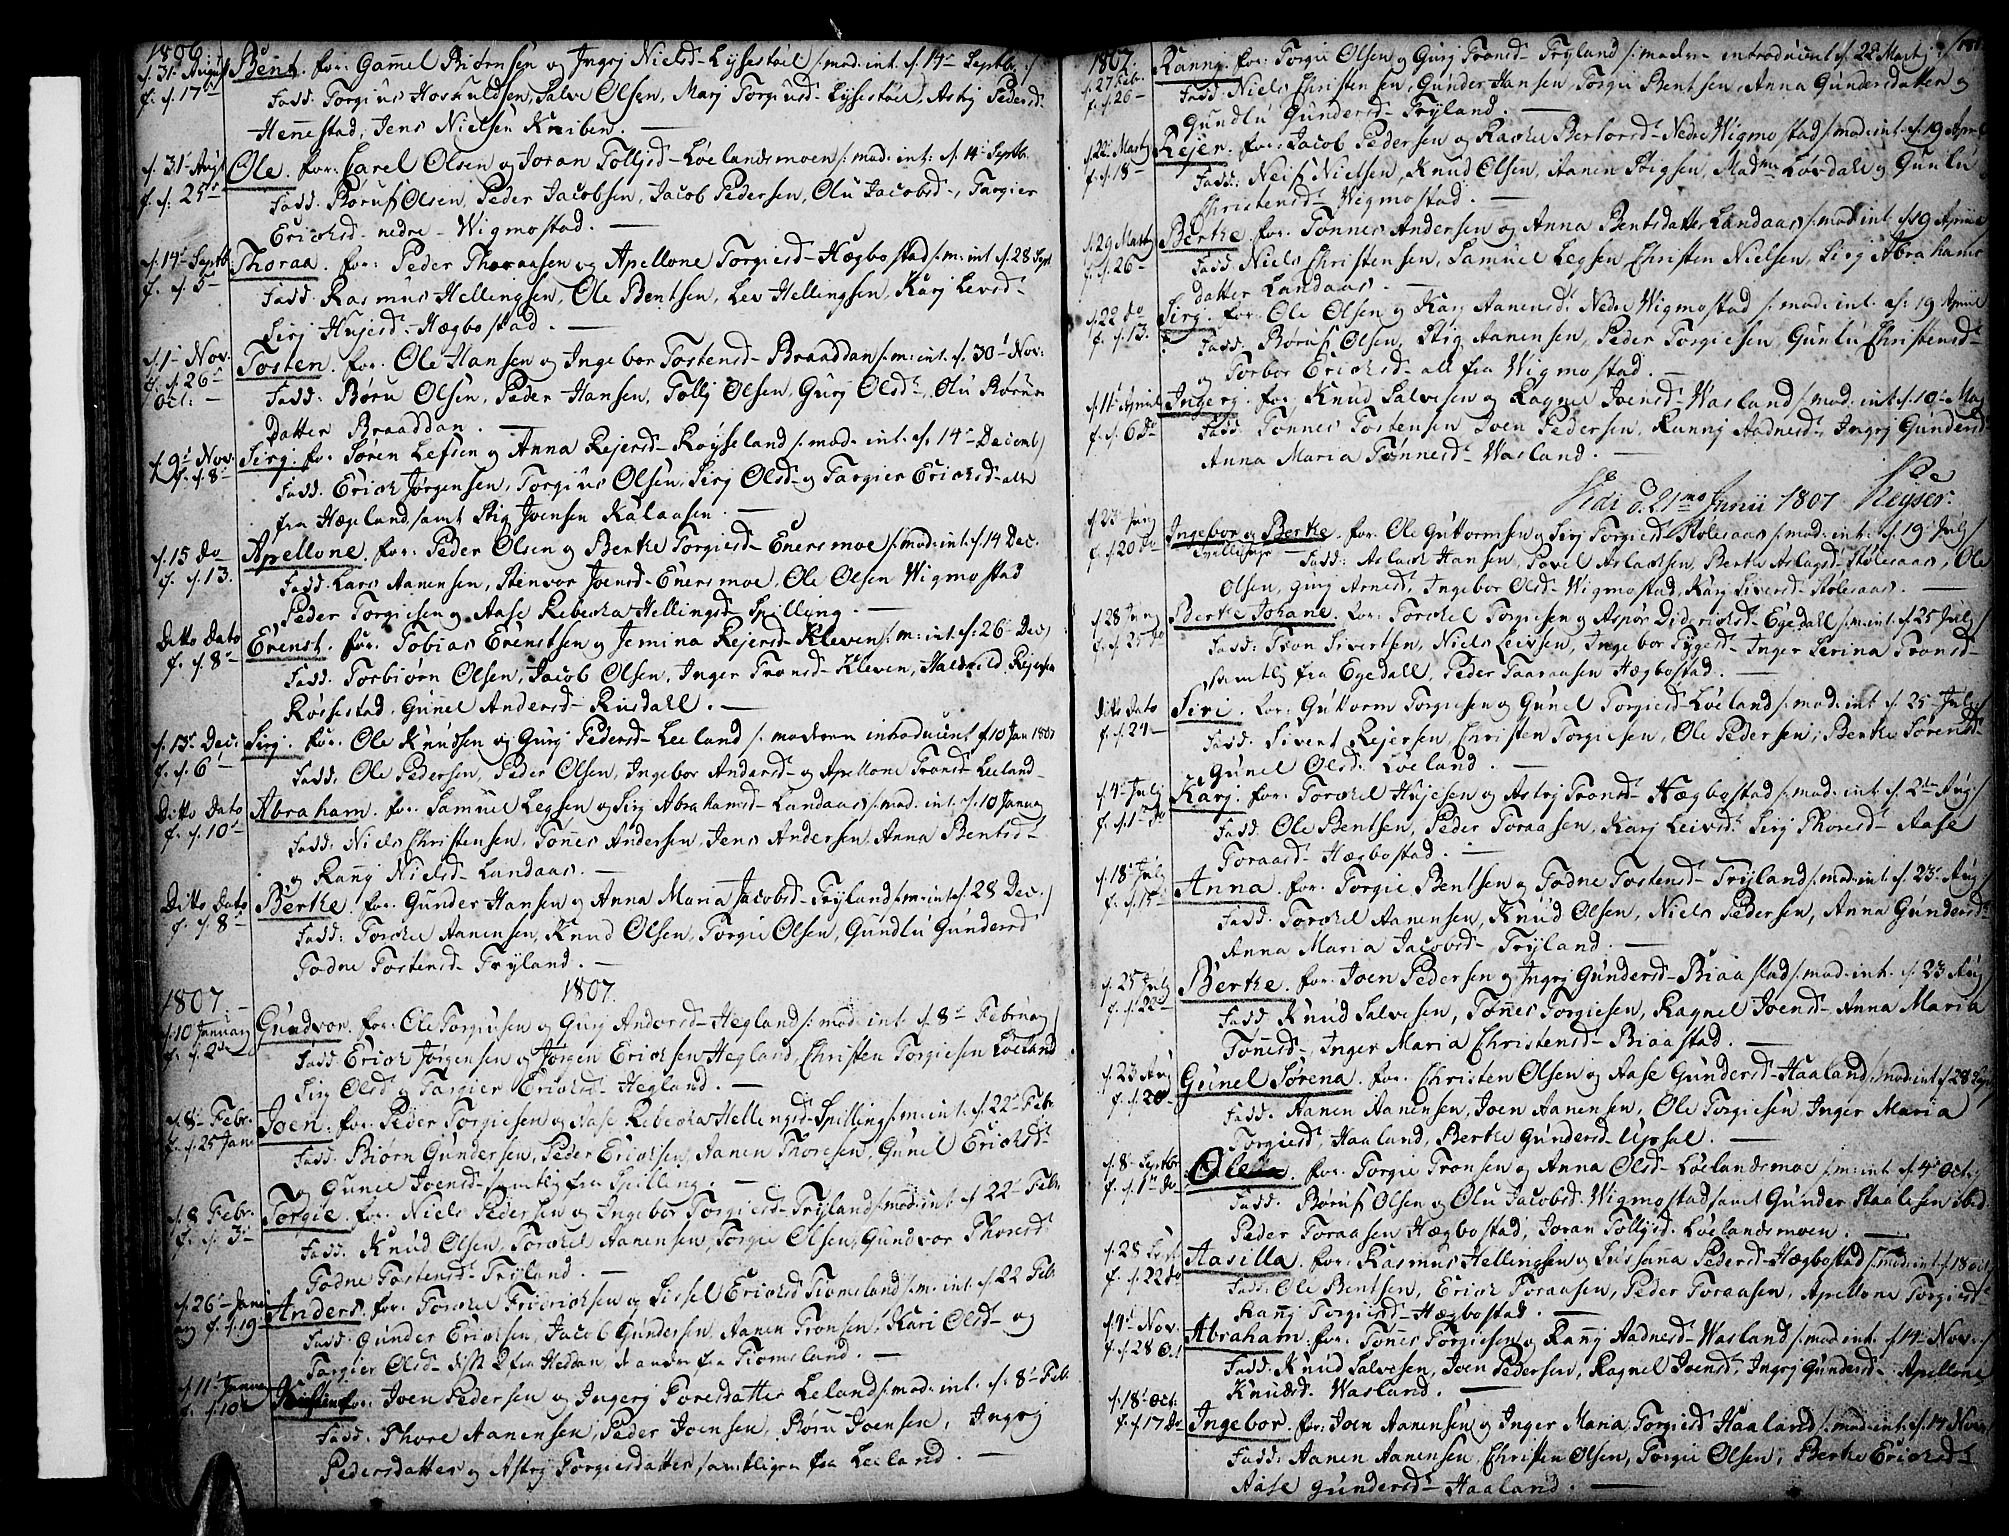 1806
d. 31 August Bent. for: Gamel Biørnsen og Ingrj Nielsd- Lyssestøel /: mod: int. d. 14 Septb: /
f. d. 17 Fadd: Torgius Hoskuldsen, Salve Olsen, Marj Torgiusd- Lyssestøel, Astrj Pedersd-
Hennestad, Jens Nielsen Kniben.
d. 31 Augst Ole. for: Carel Olsen og Joran Tollejsd- Løelandsmoen /: mod: int: d. 14 Septb.
f. d. 25 Fadd: Børuf Olsen, Peder Jacobsen, Jacob Pedersen, Olu Jacobsd-, Targier
Ericksd- nedre- Wigmostad.
d. 14 Septb Thoraa. for: Peder Thoraasen og Apellone Torgiesd- Hægbostad /: m: int d. 28 Sept
f. d. 5 Fadd: Rasmus Hellingsen, Ole Bentsen, Lev Hellingsen, Karj Levsd-
Sirj Hujesd- Hægbostad.
d. 1 Nov. Tosten. for: Ole Hansen og Ingebor Tostensd- Braaddan /: m: int. d. 30 Nov:
f. d. 26 Oct: Fadd: Børu Olsen, Peder Hansen, Tollj Olsen, Gurj Olsd-, Olu Børus
Datter Braaddan.
d. 9 Nov. Sirj. for Søren Lefsen og Anna Rejersd- Røysseland /: mod: int. d. 14 Decemb /
f. d. 8 Fadd: Erick Jørgensen, Torgius Olsen, Sirj Olsd- og Targier Ericksd- alle
fra Hægeland, samt Stig Joensen Kalaasen.
d. 15 do Apellone. for: Peder Olsen og Berthe Torgiesd- Enersmoe /: mod: int. d. 14 Dec.
f. d. 13. Fadd: Lars Aanensen, Stenvor Joensd- Enersmoe, Ole Olsen Wigmostad
Peder Torgiesen og Aase Rebecka Hellingsd- Spilling.
Ditto Dato Erenst. for: Tobias Erenstsen og Jemina Rejersd- Kleven /: m: int. d. 26 Dec /
f. d. 8 Fadd: Torbiørn Olsen, Jacob Olsen, Inger Tronsd- Kleven, Rejersen
Røssestad, Gunnel Andersd- Risdall.
d. 13 Dec: Sirj. for: Ole Knudsen og Gurj Pedersd- Leeland /: moderen introducert d. 10 Jan 1807
f. d. 6 Fadd: Ole Pedersen, Peder Olsen, Ingebor Andersd- og Apellone Tronsd- Leeland
Ditto Dato Abraham. for: Samuel Legsen og Sirj Abrahamsd- Landaas /: mod: int. d. 10 Januarj
f. d. 10 Fadd: Niels Christensen, Tønnes Andersen, Jens Andersen, Anna Bentsd-
og Rannj Nielsd- Landaas.
Ditto Dato Berthe. for: Gunder Hansen og Anna Maria Jacobsd- Tryland /: m: int d. 28 Dec. /
f. d. 8 Fadd: Torckel Aanensen, Knud Olsen, Torgie Olsen, Gundlu Gundersd
Todne Tostensd- Tryland.
1807 1807.
d. 10 Januarj Gundvor. for: Ole Torgiusen og Gurj Andersd- Hegland /: mod: int. d. 8 Februarj /
f. d. 2 Fadd: Erick Jørgensen og Jørgen Ericksen Hegland, Christen Torgiesen Løeland
Sirj Olsd og Targier Ericksd- Hegland.
d. 8 Febr. Joen. for: Peder Torgiesen og Aase Rebecka Hellingsd- Spilling /: m: int. d. 22 Febr
f. d. 25 Jan: Fadd: Biørn Gundersen, Peder Ericksen, Aanen Thoresen, Gunel Ericksd-
og Gunel Joensd- samtlig fra Spilling.
d. 8 Febr. Torgie. for: Niels Pedersen og Ingebor Torgiesd- Tryland /: mod: int d. 22 Febr.
f. d. 3 Fadd: Knud Olsen, Torckel Aanensen, Torgie Olsen, Gundvor Thoresd-
Todne Tostensd- Tryland.
d. 26 Janu Anders. for: Torckel Fridricksen og Sissel Ericksd Tiomsland /: m: int. d. 22 Feb.
arj f. d. 19 Fadd: Gunder Ericksen, Jacob Gundersen, Aanen Tronsen, Kari Olsd- og
Targier Olsd- disse 2 fra Heddan, de andre fra Tiomsland.
d. 11 Januar for: Joen Pedersen og Ingerj Toresdatter Leland /: mod: int. d. 8 Feb.
f. d. 10 Fadd: Thore Aanensen, Peder Joensen, Børu Joensen, Ingrj
Pedersdatter og Astrj Torgiesdatter, samtligen fra Leeland.
1807.
d. 27 Feb. Rannj. for: Torgie Olsen og Gurj Tronsd- Tryland /: modren introducert d. 22 Martj
f. d. 26 Fadd: Niels Christensen, Gunder Hansen, Torgie Bentsen, Anna Gundersdatter og
Gundlu Gundersd- Tryland.
d. 22 Martj Rejer. for: Jacob Pedersen og Rachel Bertorsd- Nedre Wigmostad /: mod: int. d. 19 April
f. d. 18 Fadd: Neis Nielsen, Knud Olsen, Aanen Stigsen, Madme Løvdahl og Gunlu
Christensd- Wigmostad.
d. 29 Martj Berthe. for: Tønnes Andersen og Anna Bentsdatter Landaas /: mod: int. d. 19 April
f. d. 26 Fadd: Niels Christensen, Samuel Legsen, Christen Nielsen, Sirj Abrahams
datter Landaas.
d. 22 do Sirj. for: Ole Olsen og Karj Aanensd- Nedre Wigmostad /: mod: int. d. 19 April
f. d. 13. Fadd: Børuf Olsen, Stig Aanensen, Peder Torgiesen, Gunlu Christensd-
og Torbor Ericksd- all fra Wigmostad.
d. 11 April Ingerj. for: Knud Salvesen og Ragnel Joensd- Wasland /: mod: int d. 10 Maj
f. d. 6 do Fadd: Tønnes Tostensen, Joen Pedersen, Rannj Aadnesd-, Ingrj Gundersd-
Anna Maria Tønnesd- Wasland.
Vidi d. 21mo Junii 1807 Keyser.
d. 23 Junj Ingebor og Berthe. for: Ole Guttormsen og Sirj Torgiesd Stolesaas /: mod: int: d. 19 Julj /
f. d. 20 do Tvillinge Fadd: Aslack Hansen, Povel Aslacksen, Berthe Aslagsd- Stolesaas, Ole
Olsen, Gurj Arnesd, Ingebor Olsd- Wigmostad, Karj Siversd- Stolesaas.
d. 28 Junj Berthe Johane. for: Torckel Torgiesen og Aspør Didericksd- Egedall /: m: int. d. 25 Julj /
f. d. 25 do Fadd: Tron Sivertsen, Niels Leivsen, Ingebor Tygesd- Inger Serina Tronsd-
samtlig fra Egedall, Peder Taaraasen Hægbostad.
Ditto Dato Siri. for: Guttorm Torgiesen og Gunel Torgiesd- Løeland /: mod: int d. 25 Julj /
f. d. 24 Fadd: Sivert Rejersen, Christen Torgiesen, Ole Pedersen, Berthe Sørensd-
Gunel Olsd. Løeland.
d. 4 Julj Karj. for: Torckel Hujesen og Astrj Tronsd- Hægbostad /: mod: int d. 2 Aug /
f. d. 1 do Fadd: Ole Bentsen, Peder Toraasen, Karj Leivsd- Sirj Thoresd- Aase
Toraasd- Hægbostad.
d. 18 Julj Anna. for: Torgie Bentsen og Todne Tostensd- Tryland /: mod: int d. 23 Aug /
f. d. 15 Fadd: Torckel Aanensen, Knud Olsen, Niels Pedersen, Anna Gundersd-
Anna Maria Jacobsd- Tryland.
d. 25 Julj Berthe. for: Joen Pedersen og Ingrj Gundersd- Biaastad /: mod: int. d. 23 Aug /
f. d. 22 Fadd: Knud Salvesen, Tønnes Torgiesen, Ragnel Joensd- Anna Maria
Tønnesd-, Inger Maria Christensd- Biaastad.
d. 23 Aug Gunel Sørena. for: Christen Olsen og Aase Gundersd- Haaland /: mod: int d. 28 Sept
f. d. 20 Fadd: Aanen Aanensen, Joen Aanensen, Ole Torgiesen, Inger Maria
Torgiesd, Haaland, Berthe Gundersd- Upsal.
d. 8 Septbr for: Torgie Tronsen og Anna Olsd- Løelandsmoe /: m: int d. 4 Oct:
f. d. 1 do Fadd: Børuf Olsen og Olu Jacobsd- Wigmostad samt Gunder Staalesen ibid.
Peder Toraasen Hægbostad, Joran Tollejsd- Løelandsmoen.
d. 28 Sept Aasilla. for: Rasmus Hellingsen og Sussana Pedersd- Hægbostad /: mod: int d. 18 Oct
f. d. 22 do Fadd: Ole Bentsen, Erick Toraasen, Peder Toraasen, Apellone Torgiesd-
Rannj Torgiesd- Hægbostad.
d. 4 Nov. Abraham. for: Tønnes Torgiesen og Rannj Aadnesd- Wasland /: mod: int. d. 14 Nov: /
f. d. 28 Oct Fadd: Knud Salvesen, Joen Pedersen, Ragnel Joensd, Ingrj Gundersd- Apellone
Knudsd- Wasland.
d. 18 Oct. Ingebor. for: Joen Aanensen og Inger Maria Torgiesd Haaland /: mod: int. d. 14 Nov /
f. d. 17 do Fadd: Aanen Aanensen, Christen Olsen, Torgie Olsen, Berthe Ericksd-
Aase Gundersd- Haaland.